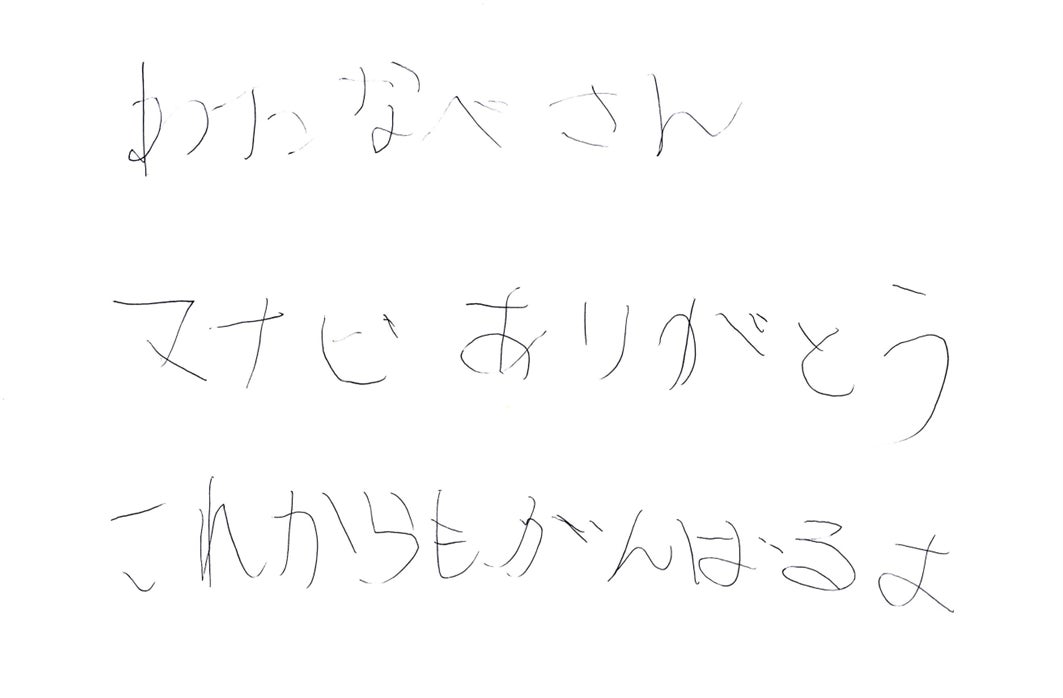 わたなべさん
マナビありがとう
これからもがんばるよ